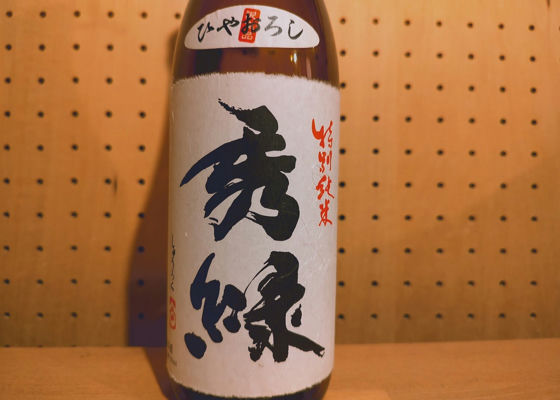 ひやおろし
特別純米
秀緑